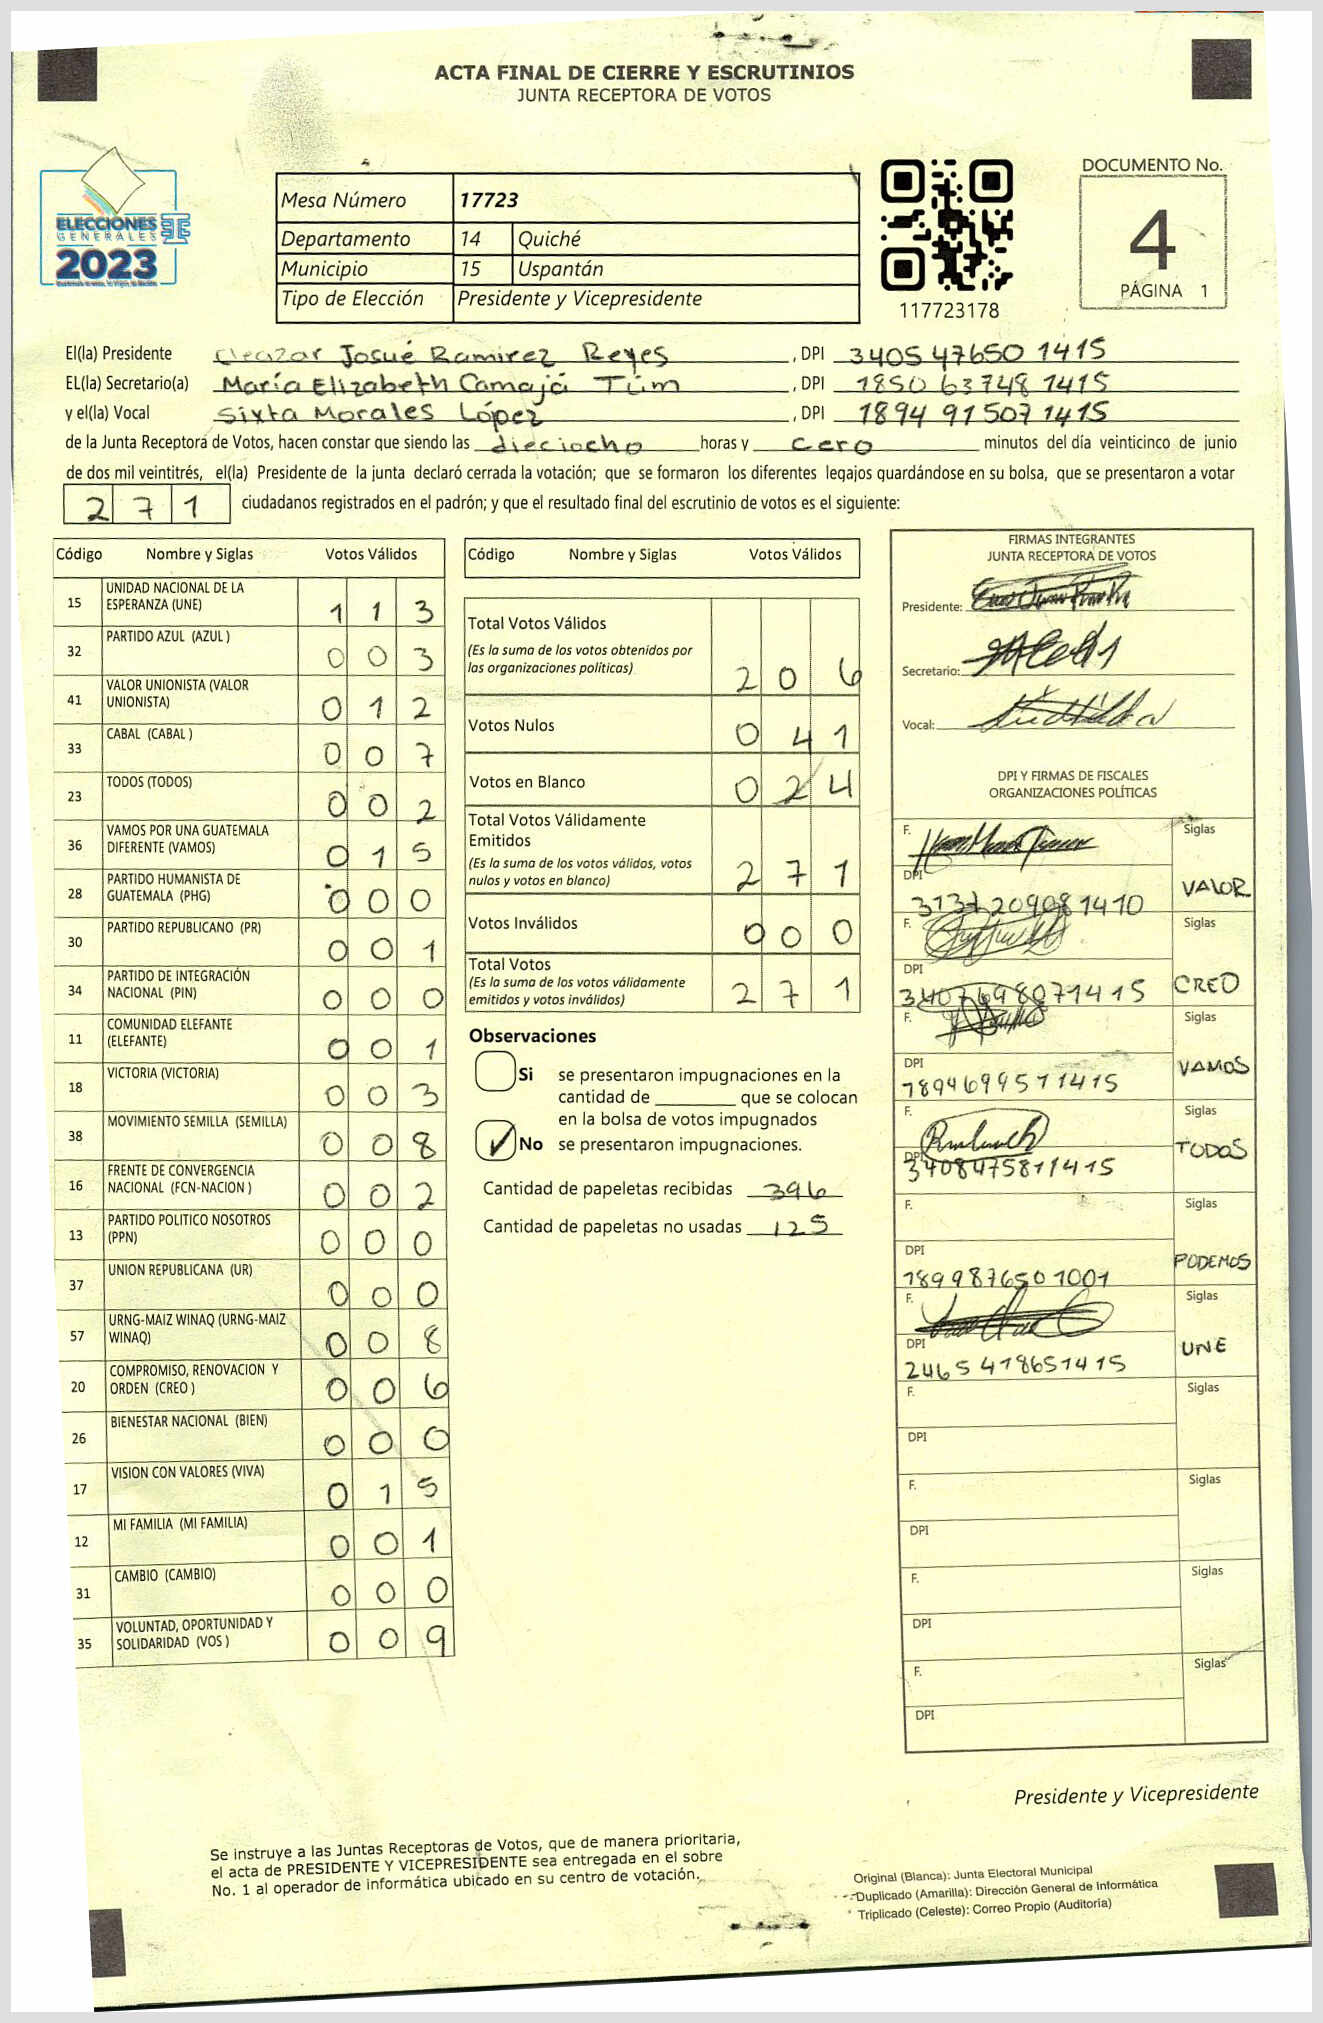 ACTA FINAL DE CIERRE Y ESCRUTINIOS
JUNTA RECEPTORA DE VOTOS
ELECCIONES
GENERALES
2023
Mesa Número 17723
Departamento 14 Quiché
Municipio 15 Uspantán
Tipo de Elección Presidente y Vicepresidente
117723178
DOCUMENTO No.
4
PÁGINA 1
El(la) Presidente Eleazar Josué Ramirez Reyes , DPI 3405 47650 1415
EL(la) Secretario(a) María Elizabeth Camajá Tüm , DPI 1850 63748 1415
y el(la) Vocal Sixta Morales López , DPI 1894 91507 1415
de la Junta Receptora de Votos, hacen constar que siendo las dieciocho horas y cero minutos del día veinticinco de junio
de dos mil veintitrés, el(la) Presidente de la junta declaró cerrada la votación; que se formaron los diferentes legajos quardándose en su bolsa, que se presentaron a votar
271 ciudadanos registrados en el padrón; y que el resultado final del escrutinio de votos es el siguiente:
Código Nombre y Siglas Votos Válidos
15 UNIDAD NACIONAL DE LA ESPERANZA (UNE) 1 1 3
32 PARTIDO AZUL (AZUL ) 0 0 3
41 VALOR UNIONISTA (VALOR UNIONISTA) 0 1 2
33 CABAL (CABAL ) 0 0 7
23 TODOS (TODOS) 0 0 2
36 VAMOS POR UNA GUATEMALA DIFERENTE (VAMOS) 0 1 5
28 PARTIDO HUMANISTA DE GUATEMALA (PHG) 0 0 0
30 PARTIDO REPUBLICANO (PR) 0 0 1
34 PARTIDO DE INTEGRACIÓN NACIONAL (PIN) 0 0 0
11 COMUNIDAD ELEFANTE (ELEFANTE) 0 0 1
18 VICTORIA (VICTORIA) 0 0 3
38 MOVIMIENTO SEMILLA (SEMILLA) 0 0 8
16 FRENTE DE CONVERGENCIA NACIONAL (FCN-NACION ) 0 0 2
13 PARTIDO POLITICO NOSOTROS (PPN) 0 0 0
37 UNION REPUBLICANA (UR) 0 0 0
57 URNG-MAIZ WINAQ (URNG-MAIZ WINAQ) 0 0 8
20 COMPROMISO, RENOVACION Y ORDEN (CREO ) 0 0 6
26 BIENESTAR NACIONAL (BIEN) 0 0 0
17 VISION CON VALORES (VIVA) 0 1 5
12 MI FAMILIA (MI FAMILIA) 0 0 1
31 CAMBIO (CAMBIO) 0 0 0
35 VOLUNTAD, OPORTUNIDAD Y SOLIDARIDAD (VOS ) 0 0 9
Código Nombre y Siglas Votos Válidos
Total Votos Válidos
(Es la suma de los votos obtenidos por
las organizaciones políticas) 2 0 6
Votos Nulos 0 4 1
Votos en Blanco 0 2 4
Total Votos Válidamente
Emitidos
(Es la suma de los votos válidos, votos
nulos y votos en blanco) 2 7 1
Votos Inválidos 0 0 0
Total Votos
(Es la suma de los votos válidamente
emitidos y votos inválidos) 2 7 1
Observaciones
Si se presentaron impugnaciones en la
cantidad de ________ que se colocan
en la bolsa de votos impugnados
No se presentaron impugnaciones.
Cantidad de papeletas recibidas 396
Cantidad de papeletas no usadas 125
FIRMAS INTEGRANTES
JUNTA RECEPTORA DE VOTOS
Presidente:
Secretario:
Vocal:
DPI Y FIRMAS DE FISCALES
ORGANIZACIONES POLÍTICAS
F. Siglas
DPI VALOR
3137 20908 1410
F. Siglas
DPI CREO
3407698071415
F. Siglas
DPI VAMOS
1894699511415
F. Siglas
DPI TODOS
3408475811415
F. Siglas
DPI PODEMOS
1899876501001
F. Siglas
DPI UNE
2465 418651415
F. Siglas
DPI
F. Siglas
DPI
F. Siglas
DPI
F. Siglas
DPI
Presidente y Vicepresidente
Se instruye a las Juntas Receptoras de Votos, que de manera prioritaria,
el acta de PRESIDENTE Y VICEPRESIDENTE sea entregada en el sobre
No. 1 al operador de informática ubicado en su centro de votación.
Original (Blanca): Junta Electoral Municipal
Duplicado (Amarilla): Dirección General de Informática
Triplicado (Celeste): Correo Propio (Auditoría)